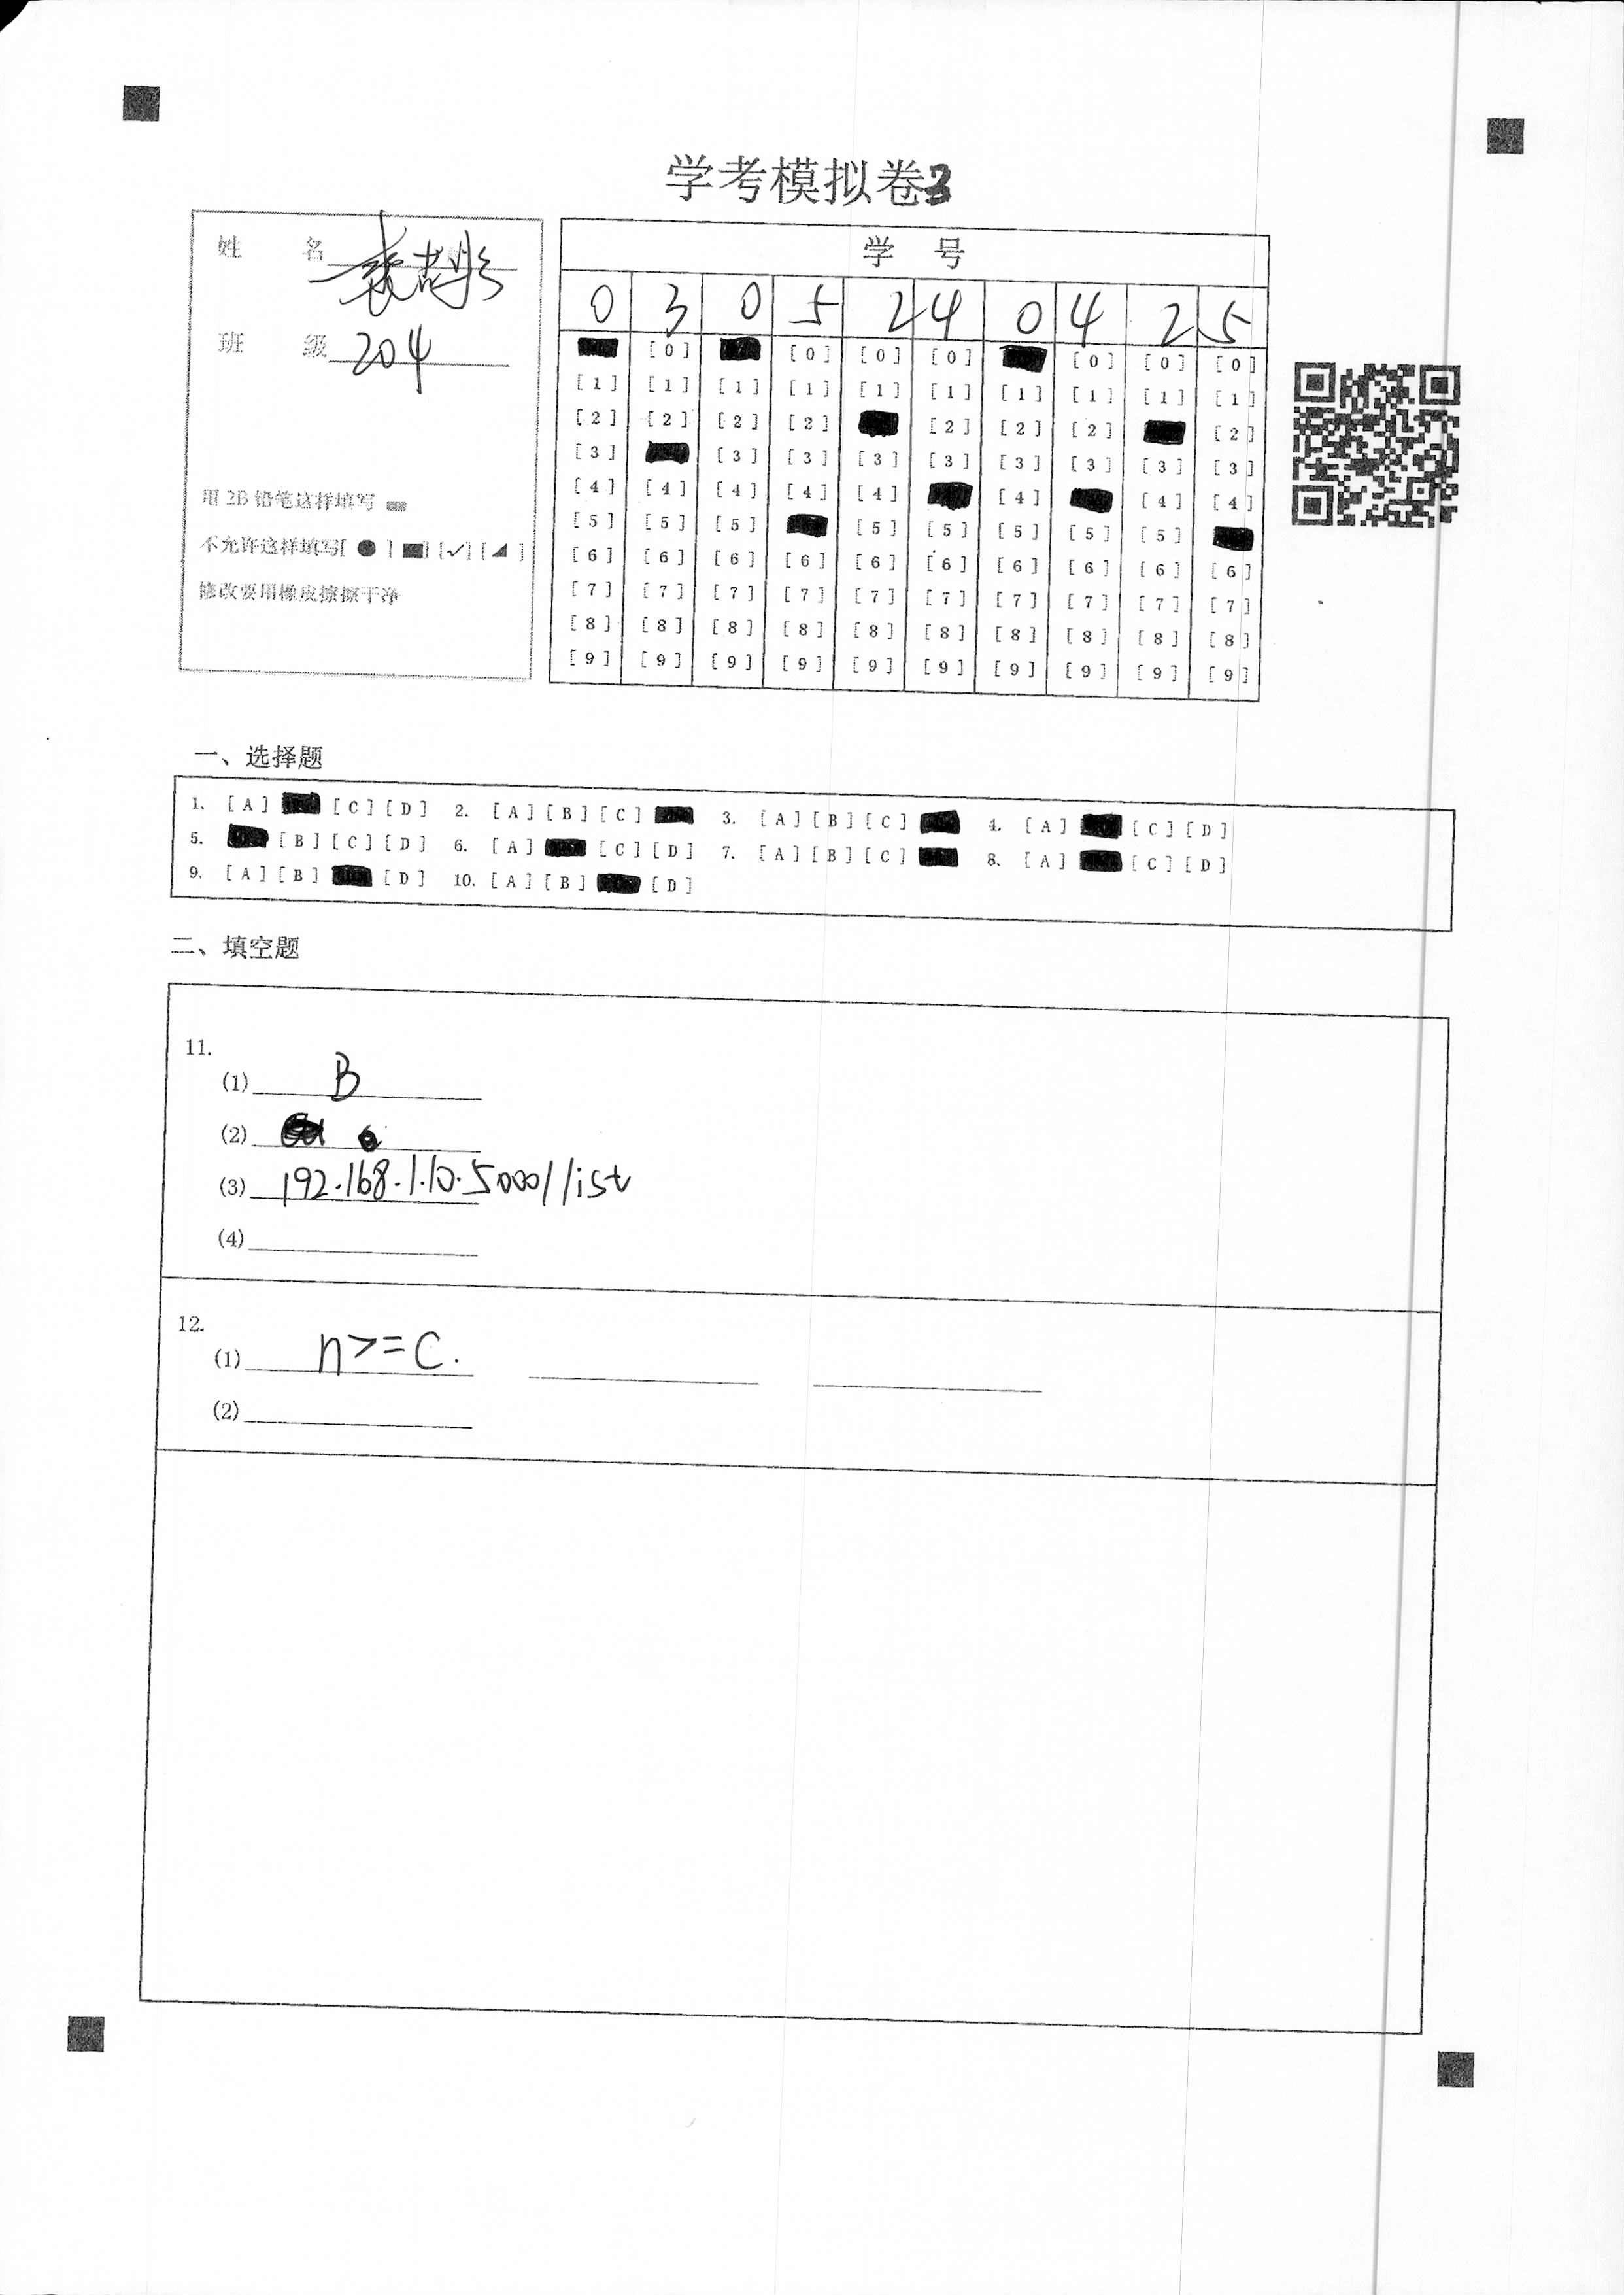 学考模拟卷3
姓 名
班 级 204
用 2B 铅笔这样填写
不允许这样填写[ ● ] [■] [✓] [◢ ]
修改要用橡皮擦擦干净
学 号
0 3 0 5 2 4 0 4 2 5
[0] [0] [0] [0] [0] [0] [0]
[1] [1] [1] [1] [1] [1] [1] [1] [1] [1]
[2] [2] [2] [2] [2] [2] [2] [2]
[3] [3] [3] [3] [3] [3] [3] [3] [3]
[4] [4] [4] [4] [4] [4] [4] [4]
[5] [5] [5] [5] [5] [5] [5] [5]
[6] [6] [6] [6] [6] [6] [6] [6] [6] [6]
[7] [7] [7] [7] [7] [7] [7] [7] [7] [7]
[8] [8] [8] [8] [8] [8] [8] [8] [8] [8]
[9] [9] [9] [9] [9] [9] [9] [9] [9] [9]
一、选择题
1. [A] [C] [D] 2. [A] [B] [C] 3. [A] [B] [C] 4. [A] [C] [D]
5. [B] [C] [D] 6. [A] [C] [D] 7. [A] [B] [C] 8. [A] [C] [D]
9. [A] [B] [D] 10. [A] [B] [D]
二、填空题
11.
(1) B
(2)
(3) 192.168.1.10.5000/list
(4)
12.
(1) n>=C.
(2)